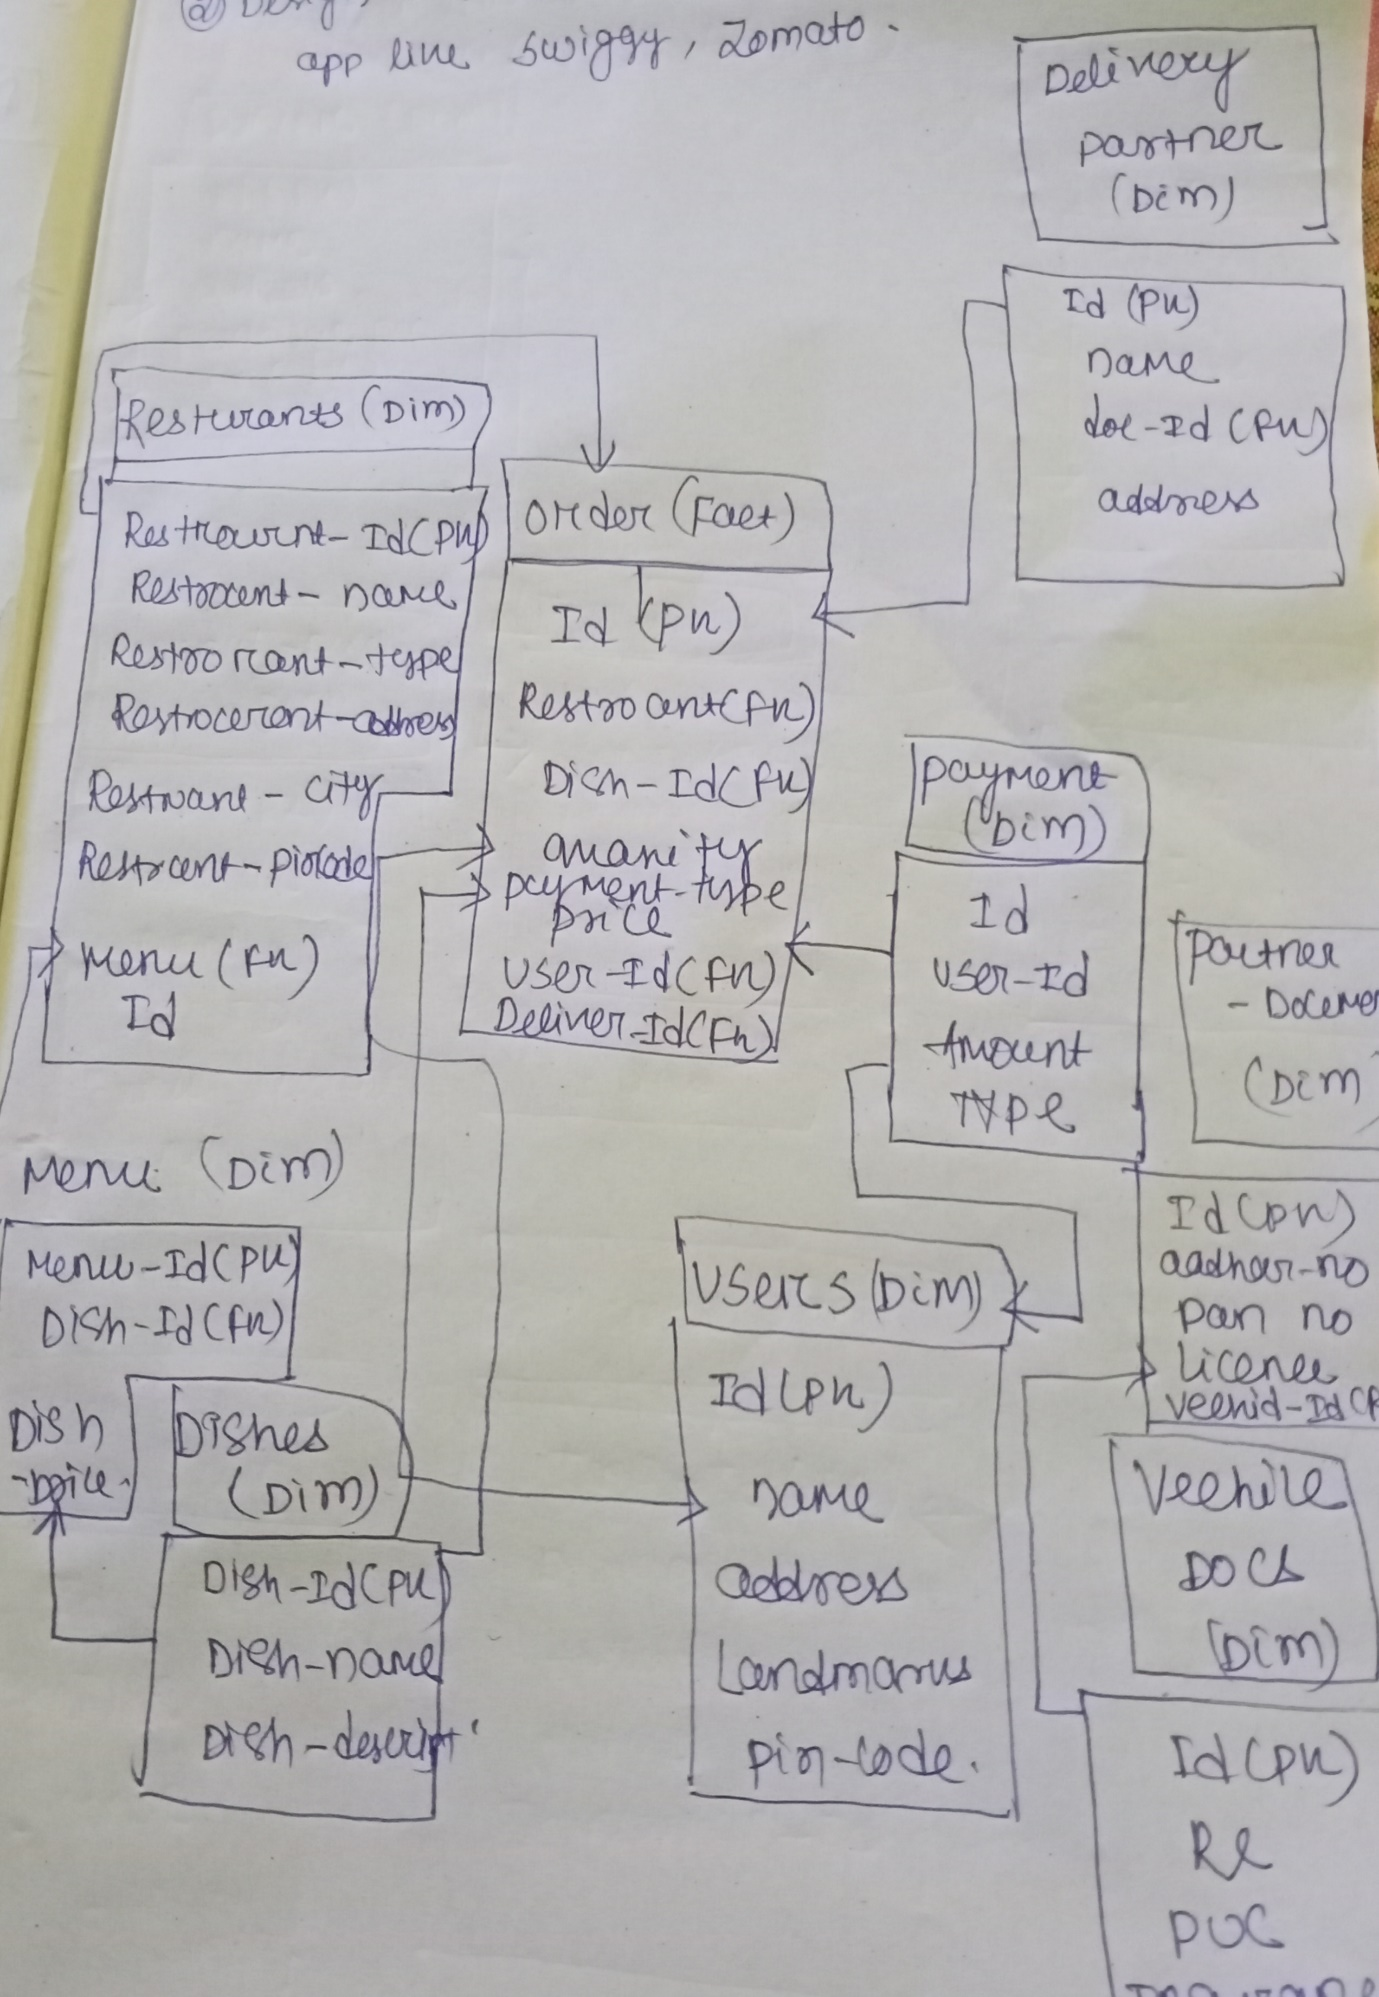 app like swiggy, Zomato.
Delivery
partner
(Dim)
Id (PK)
name
doc-Id (FK)
address
Resturants (Dim)
Restraurnt-Id(PK)
Restrocent-name
Restrorcant-type
Restrocerant-addres
Restruant-city
Restrcent-pincode
Menu (FK)
Id
Order (Fact)
Id (PK)
Restrocant(FK)
Dish-Id(FK)
quanity
payment-type
price
User-Id(FK)
Deliver-Id(FK)
payment
(Dim)
Id
User-Id
Amount
Type
Partner
-Docume
(Dim
Id(PK)
aadhar-no
pan no
licence
Veehid-Id(F
Menu (Dim)
Menu-Id(PK)
Dish-Id(FK)
Dish
-price.
Dishes
(Dim)
Dish-Id(PK)
Dish-name
Dish-descript
Users (Dim)
Id(PK)
name
address
Landmarks
pin-code.
Veehile
DOCS
(Dim)
Id(PK)
RC
PUC